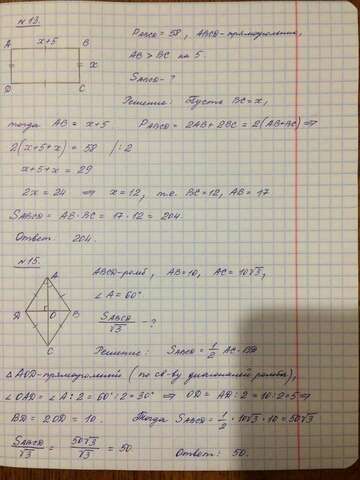 № 13.
A x+5 B
x
D C
P ABCD = 58, ABCD - прямоугольник,
AB > BC на 5.
S ABCD - ?
Решение: Пусть BC = x,
тогда AB = x+5 P ABCD = 2AB + 2BC = 2(AB+BC) ⇒
2(x+5+x) = 58 /:2
x+5+x = 29
2x = 24 ⇒ x = 12, т.е. BC = 12, AB = 17
S ABCD = AB · BC = 17 · 12 = 204.
Ответ: 204.
№ 15.
A
D O B
C
ABCD - ромб, AB = 10, AC = 10√3,
∠A = 60°
S ABCD / √3 - ?
Решение: S ABCD = 1/2 AC · BD
△AOD - прямоугольный (по св-ву диагоналей ромба),
∠OAD = ∠A : 2 = 60° : 2 = 30° ⇒ OD = AD : 2 = 10 : 2 = 5 ⇒
BD = 2OD = 10 Тогда S ABCD = 1/2 · 10√3 · 10 = 50√3
S ABCD / √3 = 50√3 / √3 = 50. Ответ: 50.